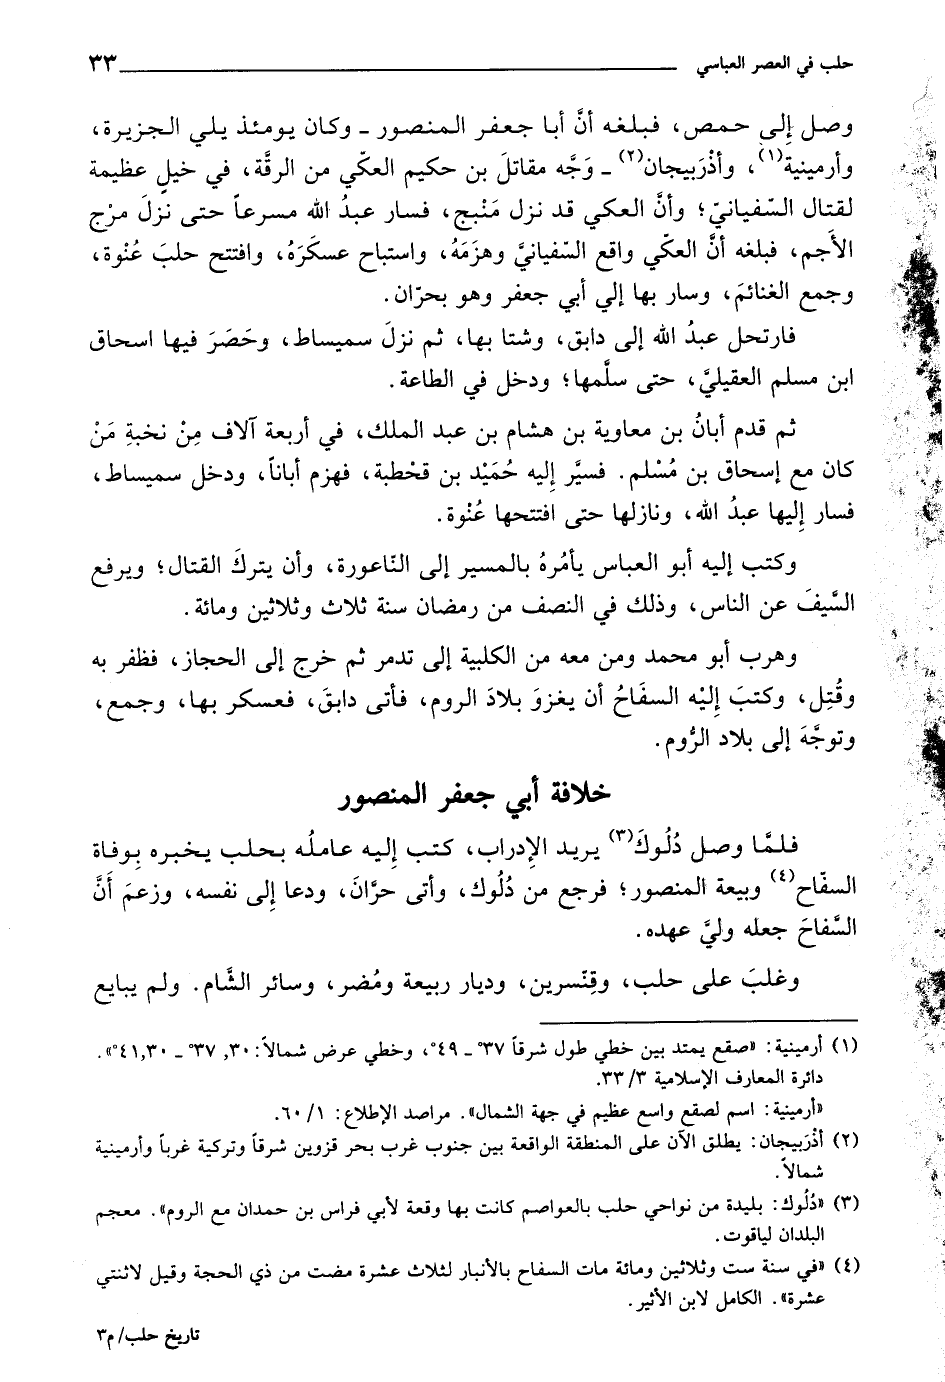 حلب في العصر العباسي ٣٣
وصل إلى حمص، فبلغه أنَّ أبا جعفر المنصور ـ وكان يومئذ يلي الجزيرة،
وأرمينية(١)، وأذْرَبيجان(٢) ـ وَجَّه مقاتلَ بن حكيم العكّي من الرقَّة، في خيلٍ عظيمة
لقتال السّفيانيّ؛ وأنَّ العكي قد نزل مَنْبج، فسار عبدُ الله مسرعاً حتى نزلَ مرْج
الأَجم، فبلغه أنَّ العكّي واقع السّفيانيَّ وهزَمَهُ، واستباح عسكَرَهُ، وافتتح حلبَ عُنْوة،
وجمع الغنائمَ، وسار بها إلي أبي جعفر وهو بحرّان.
فارتحل عبدُ الله إلى دابق، وشتا بها، ثم نزلَ سميساط، وحَصَرَ فيها اسحاق
ابن مسلم العقيليَّ، حتى سلَّمها؛ ودخل في الطاعة.
ثم قدم أبانُ بن معاوية بن هشام بن عبد الملك، في أربعة آلاف مِنْ نخبةِ مَنْ
كان مع إسحاق بن مُسْلم. فسيَّر إليه حُمَيْد بن قحْطبة، فهزم أباناً، ودخل سميساط،
فسار إليها عبدُ الله، ونازلها حتى افتتحها عُنْوة.
وكتب إليه أبو العباس يأمُرهُ بالمسير إلى النّاعورة، وأن يتركَ القتال؛ ويرفع
السَّيفَ عن الناس، وذلك في النصف من رمضان سنة ثلاث وثلاثين ومائة.
وهرب أبو محمد ومن معه من الكلبية إلى تدمر ثم خرج إلى الحجاز، فظفر به
وقُتِل، وكتبَ إليْه السفَاحُ أن يغزوَ بلادَ الروم، فأتى دابقَ، فعسكر بها، وجمع،
وتوجَّهَ إلى بلاد الرُّوم.
خلافة أبي جعفر المنصور
فلمَّا وصل دُلُوكَ(٣) يريد الإدراب، كتب إليه عاملُه بحلب يخبره بوفاة
السفّاح(٤) وبيعة المنصور؛ فرجع من دُلُوك، وأتى حرَّانَ، ودعا إلى نفسه، وزعمَ أنَّ
السَّفاحَ جعله وليَّ عهده.
وغلبَ على حلب، وقِنّسرين، وديار ربيعة ومُضر، وسائر الشَّام. ولم يبايع
(١) أرمينية: «صقع يمتد بين خطي طول شرقاً ٣٧° ـ ٤٩°، وخطي عرض شمالاً: ٣٠, ٣٧° ـ ٤١,٣٠°».
دائرة المعارف الإسلامية ٣/ ٣٣.
«أرمينية: اسم لصقع واسع عظيم في جهة الشمال». مراصد الإطلاع: ١/ ٦٠.
(٢) أذْرَبيجان: يطلق الآن على المنطقة الواقعة بين جنوب غرب بحر قزوين شرقاً وتركية غرباً وأرمينية
شمالاً.
(٣) «دُلُوك: بليدة من نواحي حلب بالعواصم كانت بها وقعة لأبي فراس بن حمدان مع الروم». معجم
البلدان لياقوت.
(٤) «في سنة ست وثلاثين ومائة مات السفاح بالأنبار لثلاث عشرة مضت من ذي الحجة وقيل لاثنتي
عشرة». الكامل لابن الأثير.
تاريخ حلب/ م٣